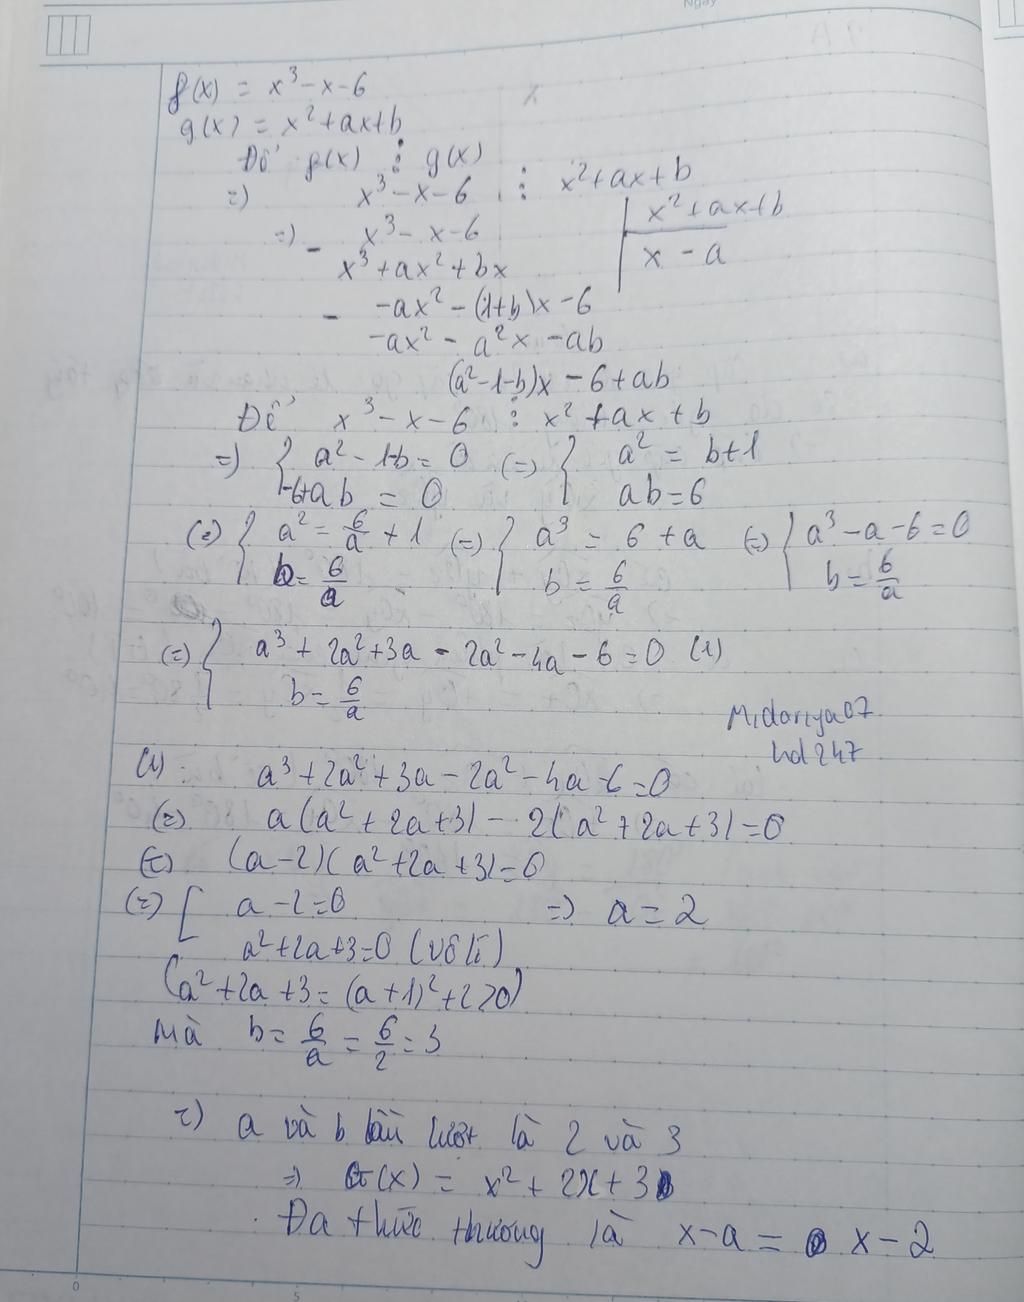 f(x) = x³ - x - 6
g(x) = x² + ax + b
Để f(x) ⋮ g(x)
=) x³ - x - 6 ⋮ x² + ax + b
=) - x³ - x - 6 | x² + ax + b
x³ + ax² + bx | x - a
- -ax² - (1+b)x - 6
-ax² - a²x - ab
(a² - 1 - b)x - 6 + ab
Để x³ - x - 6 ⋮ x² + ax + b
=) { a² - 1 - b = 0 (=) { a² = b + 1
-6 + ab = 0 ab = 6
(=) { a² = 6/a + 1 (=) { a³ = 6 + a (=) { a³ - a - 6 = 0
b = 6/a b = 6/a b = 6/a
(=) { a³ + 2a² + 3a - 2a² - 4a - 6 = 0 (1)
b = 6/a
Midoriya07
hd247
(1): a³ + 2a² + 3a - 2a² - 4a - 6 = 0
(=) a(a² + 2a + 3) - 2(a² + 2a + 3) = 0
(=) (a - 2)(a² + 2a + 3) = 0
(=) [ a - 2 = 0 =) a = 2
a² + 2a + 3 = 0 (vô lí)
(a² + 2a + 3 = (a + 1)² + 2 > 0)
Mà b = 6/a = 6/2 = 3
=) a và b lần lượt là 2 và 3
=) G(x) = x² + 2x + 3
Đa thức thương là x - a = x - 2
0
5